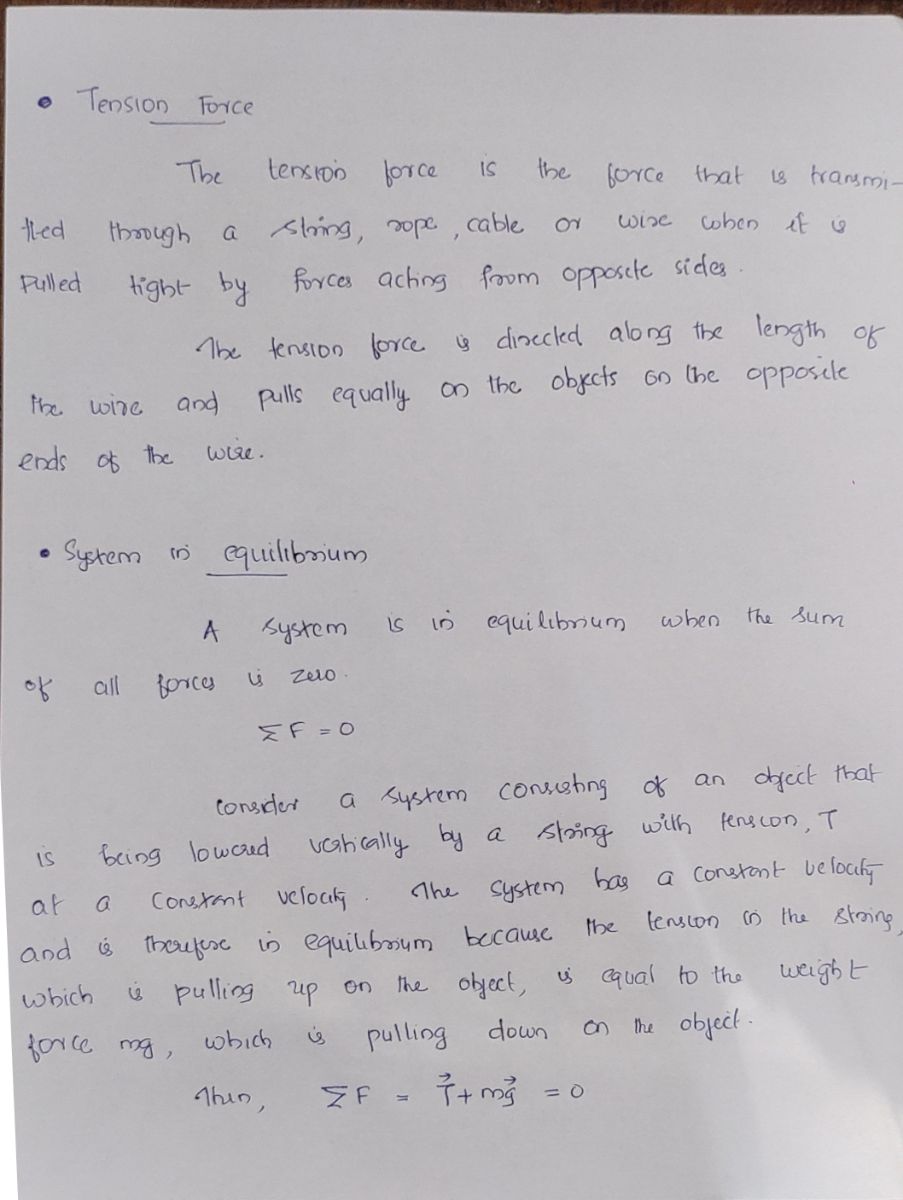 • Tension Force
The tension force is the force that is transmi-
tted through a string, rope, cable or wire when it is
pulled tight by forces acting from opposite sides.
The tension force is directed along the length of
the wire and pulls equally on the objects on the opposite
ends of the wire.
• System in equilibrium
A system is in equilibrium when the sum
of all forces is zero.
ΣF = 0
Consider a system consisting of an object that
is being lowered vertically by a string with tension, T
at a constant velocity. The system has a constant velocity
and is therefore in equilibrium because the tension in the string,
which is pulling up on the object, is equal to the weight
force mg, which is pulling down on the object.
Then, ΣF = T⃗ + mg⃗ = 0